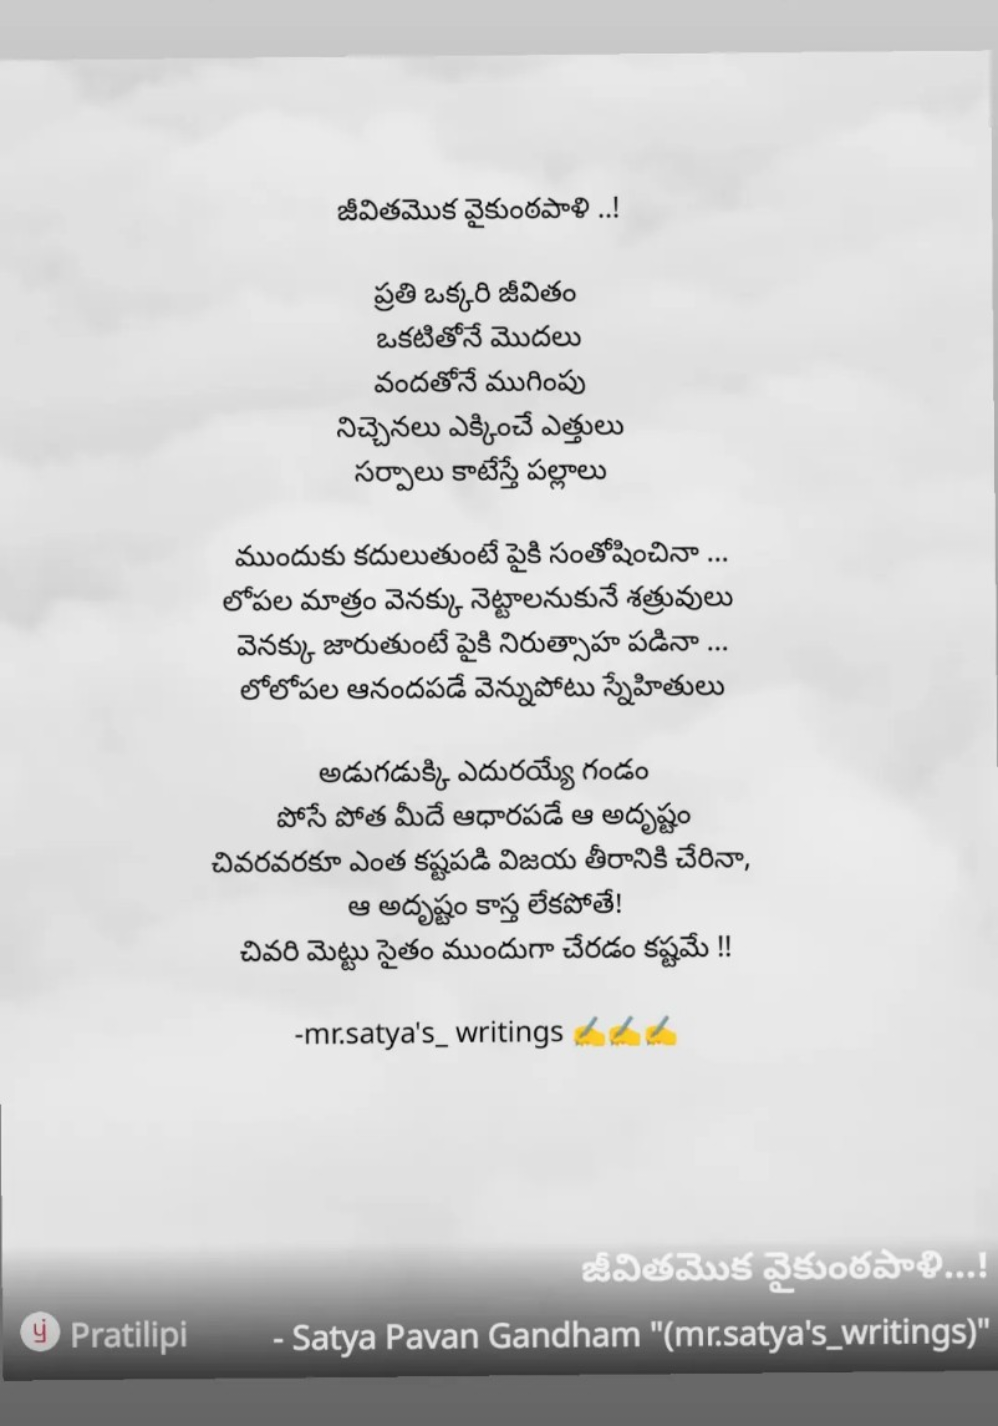 జీవితమొక వైకుంఠపాళి ..!
ప్రతి ఒక్కరి జీవితం
ఒకటితోనే మొదలు
వందతోనే ముగింపు
నిచ్చెనలు ఎక్కించే ఎత్తులు
సర్పాలు కాటేస్తే పల్లాలు
ముందుకు కదులుతుంటే పైకి సంతోషించినా ...
లోపల మాత్రం వెనక్కు నెట్టాలనుకునే శత్రువులు
వెనక్కు జారుతుంటే పైకి నిరుత్సాహ పడినా ...
లోలోపల ఆనందపడే వెన్నుపోటు స్నేహితులు
అడుగడుక్కి ఎదురయ్యే గండం
పోసే పోత మీదే ఆధారపడే ఆ అదృష్టం
చివరవరకూ ఎంత కష్టపడి విజయ తీరానికి చేరినా,
ఆ అదృష్టం కాస్త లేకపోతే!
చివరి మెట్టు సైతం ముందుగా చేరడం కష్టమే !!
-mr.satya's_ writings ✍️✍️✍️
జీవితమొక వైకుంఠపాళి...!
Pratilipi
- Satya Pavan Gandham "(mr.satya's_writings)"